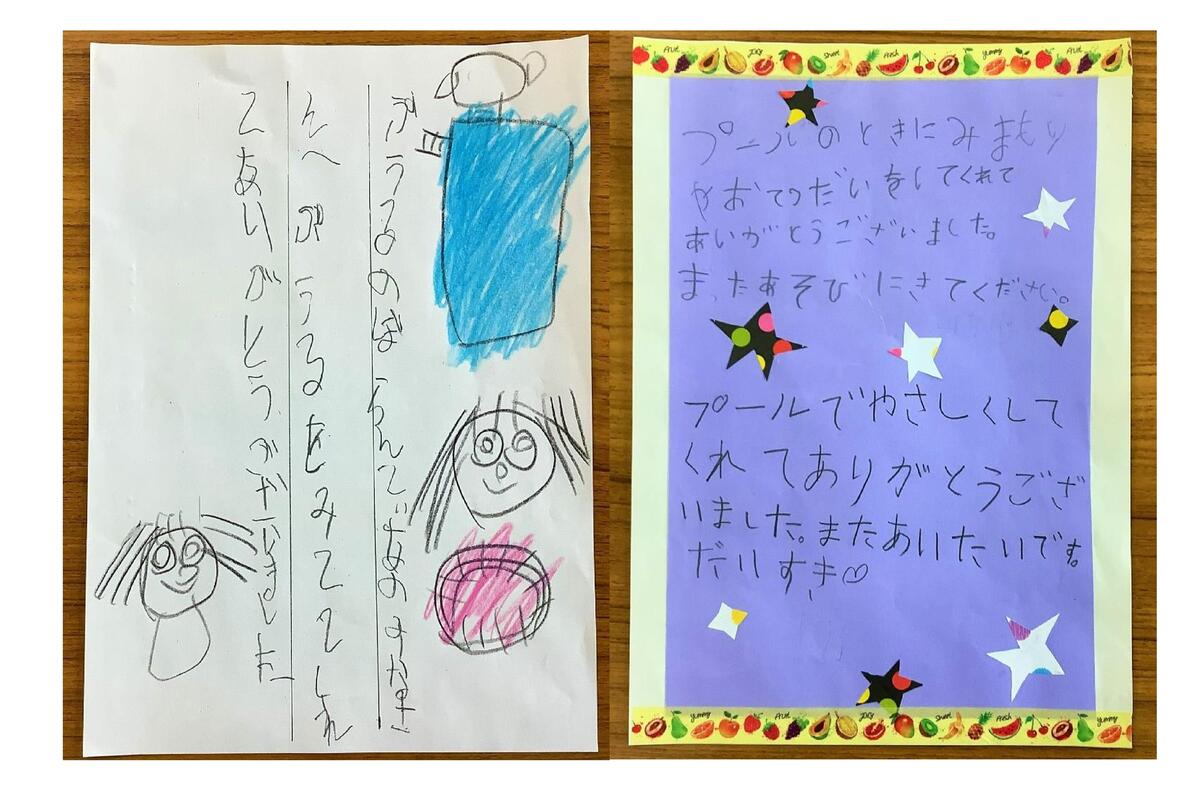 ぷうるのぼらんてぃあのみなさ
んへ ぷうるをみててくれ
てありがとうございました
Fruit Juicy Sweet Fresh yummy Fruit
プールのときにみまもり
やおてつだいをしてくれて
ありがとうございました。
まったあそびにきてください。
プールでやさしくして
くれてありがとうござ
いました。またあいたいです。
だいすき♡
yummy Fruit Juicy Sweet Fresh yummy